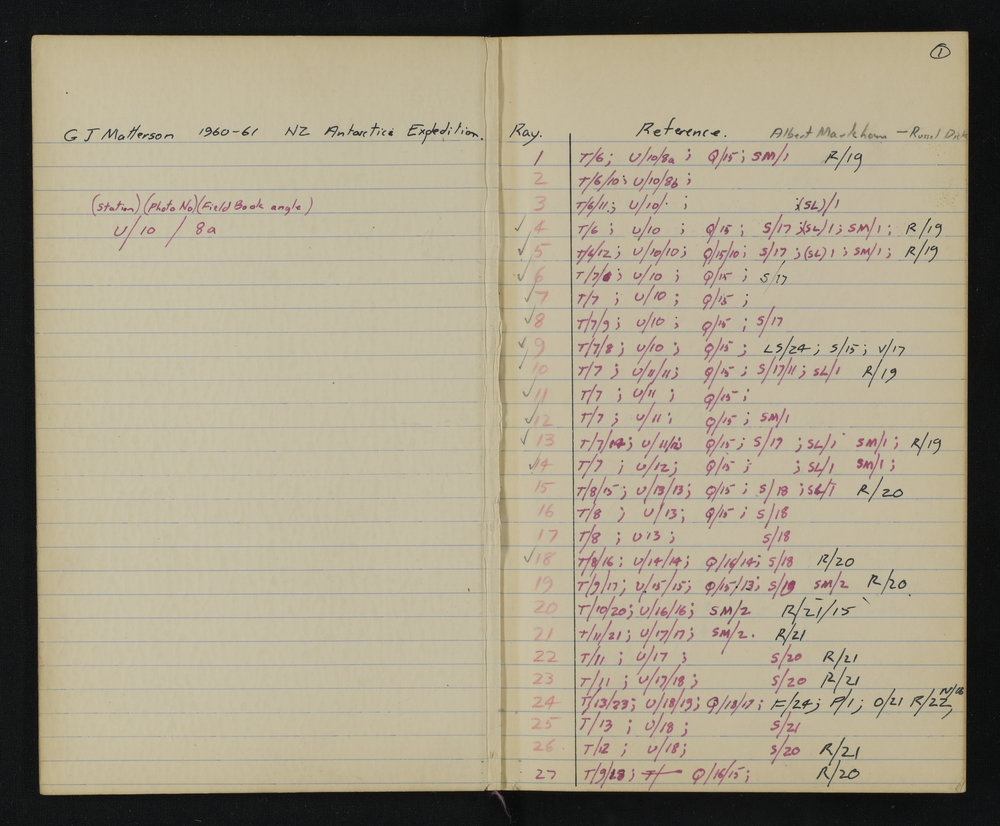 1
G J Matterson 1960-61 NZ Antarctic Expedition.
(Station) (Photo No) (Field Book angle)
U/10 / 8a
Ray. Reference. Albert Markham - Russel
1 T/6; U/10/8a; Q/15; SM/1 R/19
2 T/6/10; U/10/8b;
3 T/6/11; U/10; ;(SL)/1
✓4 T/6; U/10; Q/15; S/17;(SL)/1; SM/1; R/19
✓5 T/6/12; U/10/10; Q/15/10; S/17; (SL)1; SM/1; R/19
✓6 U/10; Q/15; S/17
✓7 T/7; U/10; Q/15;
✓8 T/7/9; U/10; Q/15; S/17
✓9 T/7/8; U/10; Q/15; LS/24; S/15; V/17
10 T/7; U/11/11; Q/15; S/17/11; SL/1 R/19
✓11 T/7; U/11; Q/15;
✓12 T/7; U/11; Q/15; SM/1
✓13 T/7/14; U/11/12 Q/15; S/17; SL/1 SM/1; R/19
✓14 T/7; U/12; Q/15; ; SL/1 SM/1;
15 T/8/15; U/13/13; Q/15; S/18; SL/1 R/20
16 T/8; U/13; Q/15; S/18
17 T/8; U13; S/18
✓18 T/8/16; U/14/14; Q/16/14; S/18 R/20
19 T/9/17; U/15/15; Q/15/13; S/19 SM/2 R/20
20 T/10/20; U/16/16; SM/2 R/21/15
21 T/11/21; U/17/17; SM/2. R/21
22 T/11; U/17; S/20 R/21
23 T/11; U/17/18; S/20 R/21
24 T/13/23; U/18/19; Q/18/17; F/24; P/1; O/21 R/22,
25 T/13; U/18; S/21
26 T/12; U/18; S/20 R/21
27 T/9/18; Q/16/15; R/20